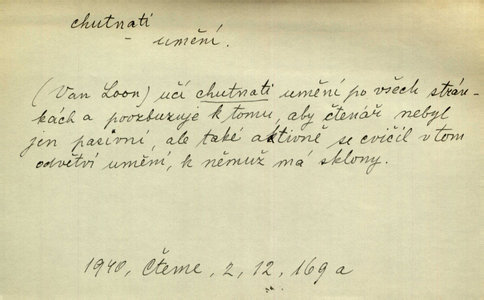 chutnati
- umění.
(Van Loon) učí chutnati umění po všech strán-
kách a poozbuzuje k tomu, aby čtenář nebyl
jen pasivní, ale také aktivně se cvičil v tom
odvětví umění, k němuž má sklony.
1940, Čteme, 2, 12, 169 a